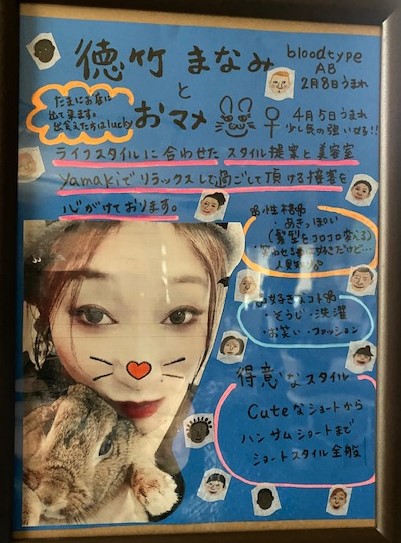 徳竹 まなみ
bloodtype
AB
2月8日うまれ
と
たまにお店に
出て来ます。
出会えた方はlucky
おマメ
♀
4月5日うまれ
少し気の強いせる!!
ライフスタイルに合わせたスタイル提案と美容室
yamakiでリラックスして過ごして頂ける接客を
心がけております。
性格
・あきっぽい
(髪型をコロコロ変える)
好きなコト
・そうじ・洗濯
・お笑い・ファッション
得意なスタイル
Cuteなショートから
ハンサムショートまで
ショートスタイル全般